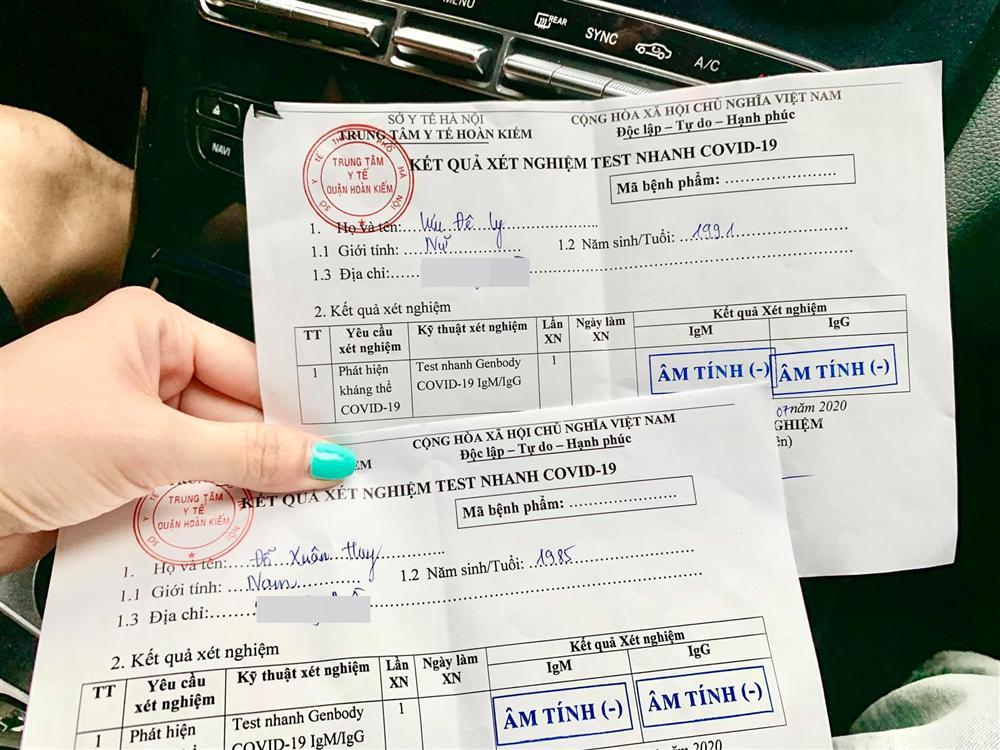 MENU
REAR
SYNC
A/C
NAVI
SỞ Y TẾ HÀ NỘI
TRUNG TÂM Y TẾ HOÀN KIẾM
CỘNG HÒA XÃ HỘI CHỦ NGHĨA VIỆT NAM
Độc lập – Tự do – Hạnh phúc
TRUNG TÂM
Y TẾ
QUẬN HOÀN KIẾM
KẾT QUẢ XÉT NGHIỆM TEST NHANH COVID-19
Mã bệnh phẩm: ......................
1. Họ và tên: Lưu Đê Ly
1.1 Giới tính: Nữ 1.2 Năm sinh/Tuổi: 1991
1.3 Địa chỉ:
2. Kết quả xét nghiệm
TT Yêu cầu xét nghiệm Kỹ thuật xét nghiệm Lần XN Ngày làm XN Kết quả Xét nghiệm
IgM IgG
1 Phát hiện kháng thể COVID-19 Test nhanh Genbody COVID-19 IgM/IgG 1 ÂM TÍNH (-) ÂM TÍNH (-)
07 năm 2020
GHIỆM
ên)
CỘNG HÒA XÃ HỘI CHỦ NGHĨA VIỆT NAM
Độc lập – Tự do – Hạnh phúc
ẾM
TRUNG TÂM
Y TẾ
QUẬN HOÀN KIẾM
KẾT QUẢ XÉT NGHIỆM TEST NHANH COVID-19
Mã bệnh phẩm: ......................
1. Họ và tên: Đỗ Xuân Huy
1.1 Giới tính: Nam 1.2 Năm sinh/Tuổi: 1985
1.3 Địa chỉ:
2. Kết quả xét nghiệm
TT Yêu cầu xét nghiệm Kỹ thuật xét nghiệm Lần XN Ngày làm XN Kết quả Xét nghiệm
IgM IgG
1 Phát hiện Test nhanh Genbody COVID-19 IgM/IgG 1 ÂM TÍNH (-) ÂM TÍNH (-)
2020